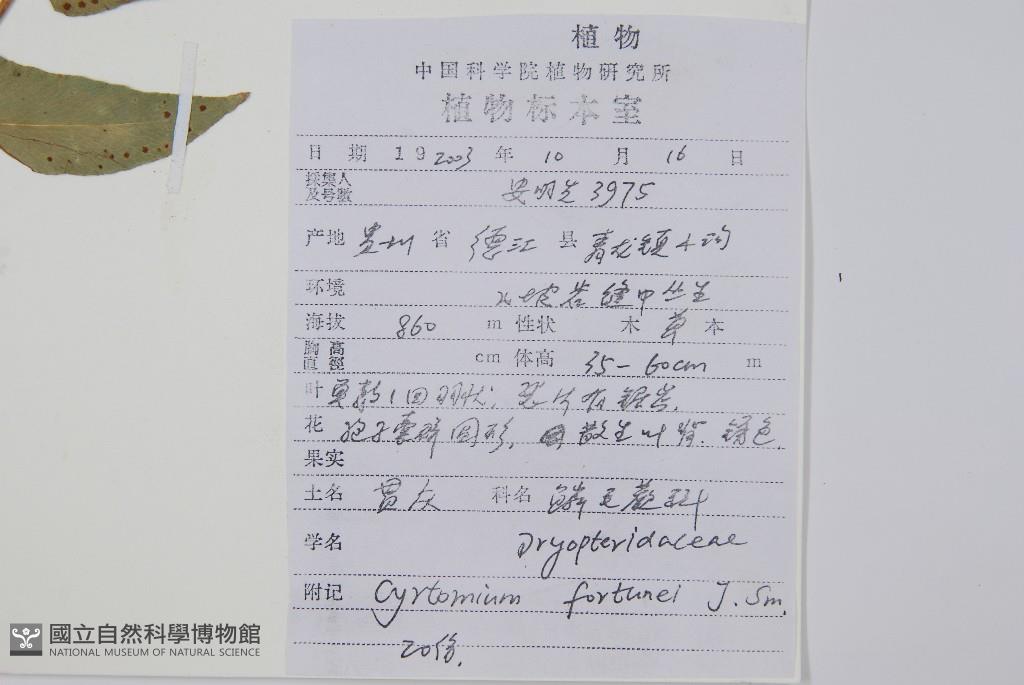 植物
中国科学院植物研究所
植物标本室
日 期 19 2003 年 10 月 16 日
採集人及号数 安明先 3975
产地 贵州 省 德江 县 青龙镇
环境 坡岩缝中丛生
海拔 860 m 性状 木 草 本
胸高直徑 cm 体高 35-60cm m
叶 1回羽状; 裂片有锯齿.
花 孢子囊群圆形, 散生叶背. 锈色
果实
土名 科名 鳞毛蕨科
学名 Dryopteridaceae
附记 Cyrtomium fortunei J. Sm.
20份.
國立自然科學博物館
NATIONAL MUSEUM OF NATURAL SCIENCE